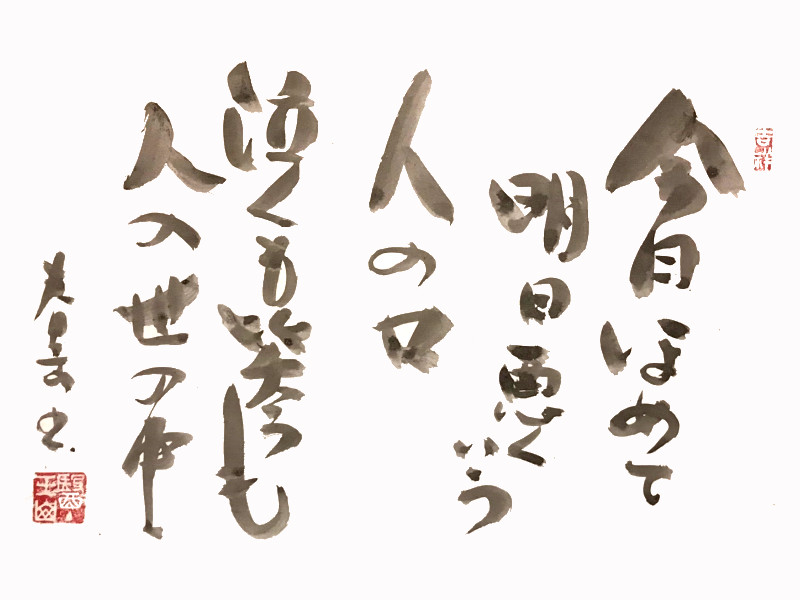 吉祥
今日ほめて
明日悪く
いう
人の口
泣くも笑うも
人の世の中